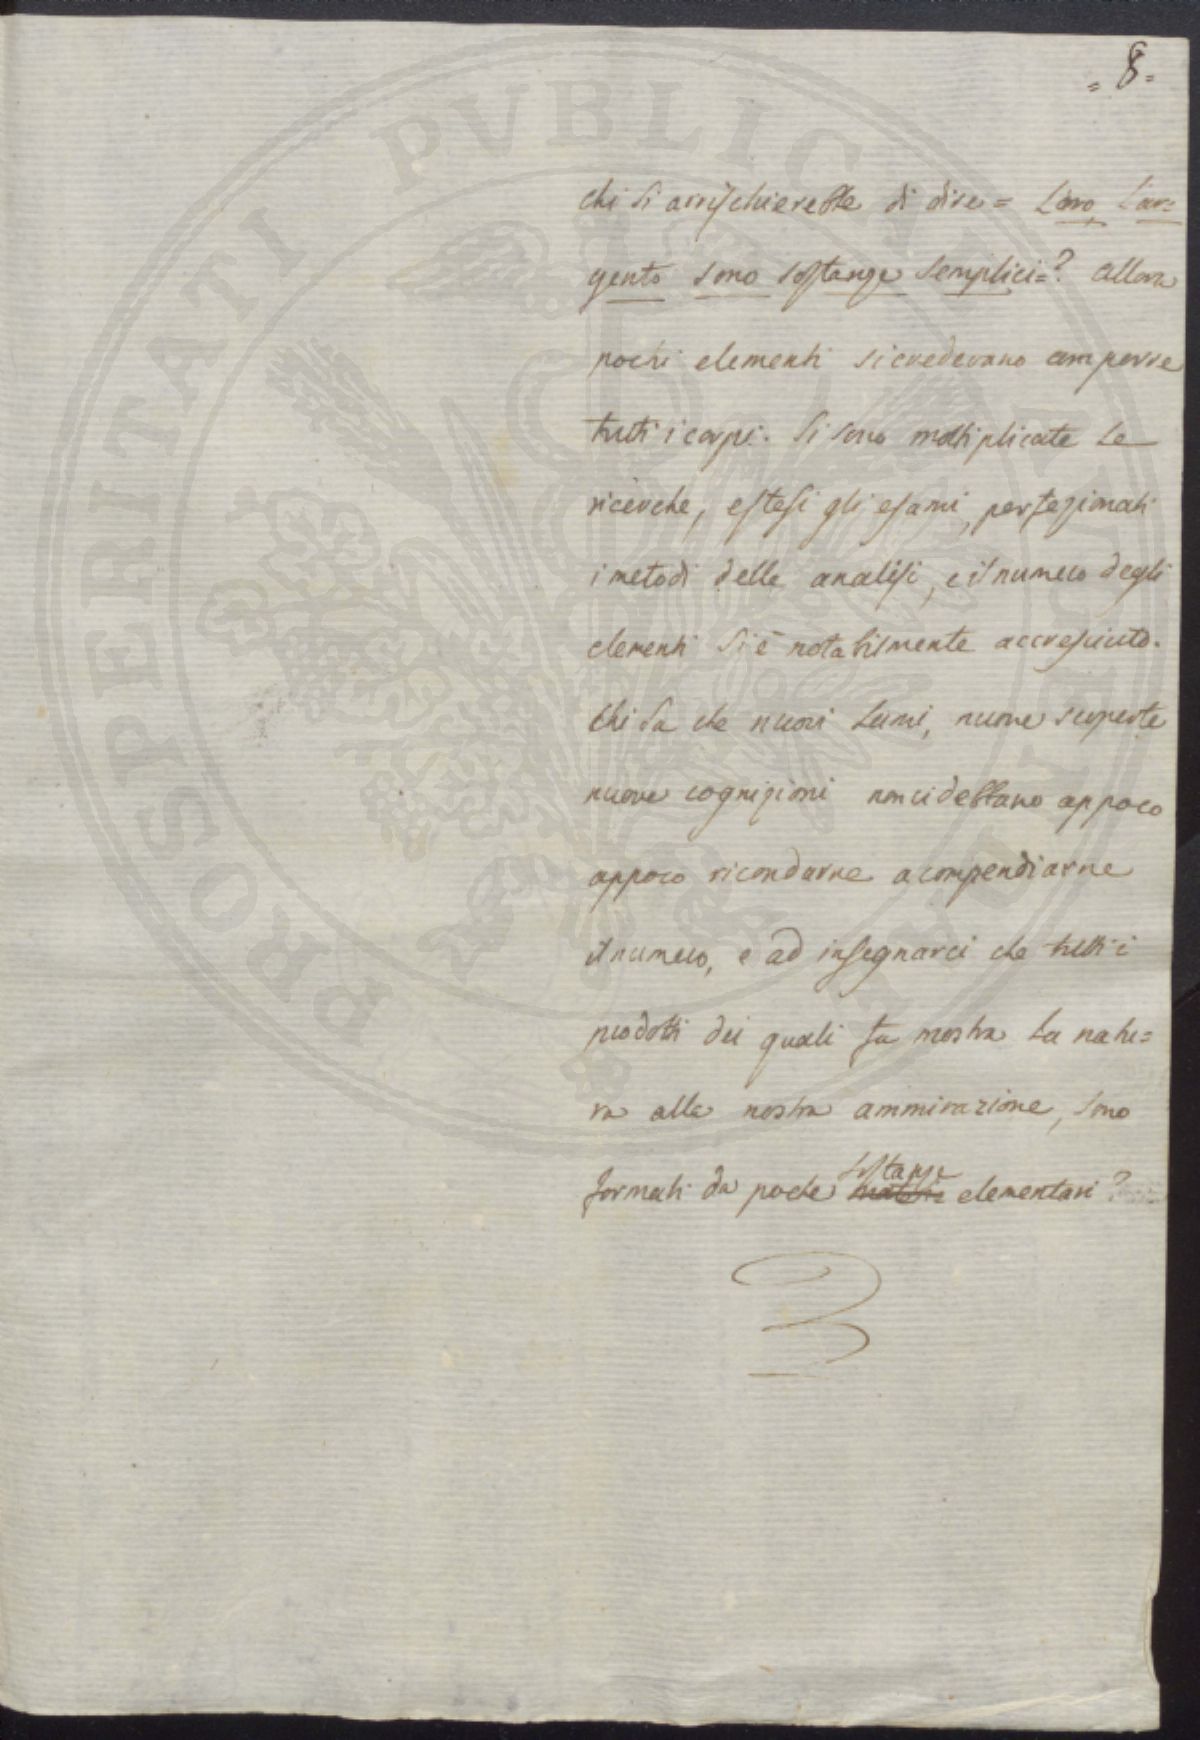 = 8 =
chi si arrischierebbe di dire = L'oro, L'ar=
gento sono sostanze semplici =? allora
pochi elementi si credevano comporre
tutti i corpi. Si sono moltiplicate Le
ricerche, estesi gli esami, perfezionati
i metodi delle analisi, e il numero degli
elementi si è notabilmente accresciuto.
Chi sa che nuovi Lumi, nuove scoperte
nuove cognizioni non ci debbano appoco
appoco ricondurne a compendiarne
il numero, e ad insegnarci che tutti i
prodotti dei quali fa mostra La natu=
ra alla nostra ammirazione, sono
sostanze
formati da poche materie elementari?
PROSPERITATI PVBLICAE